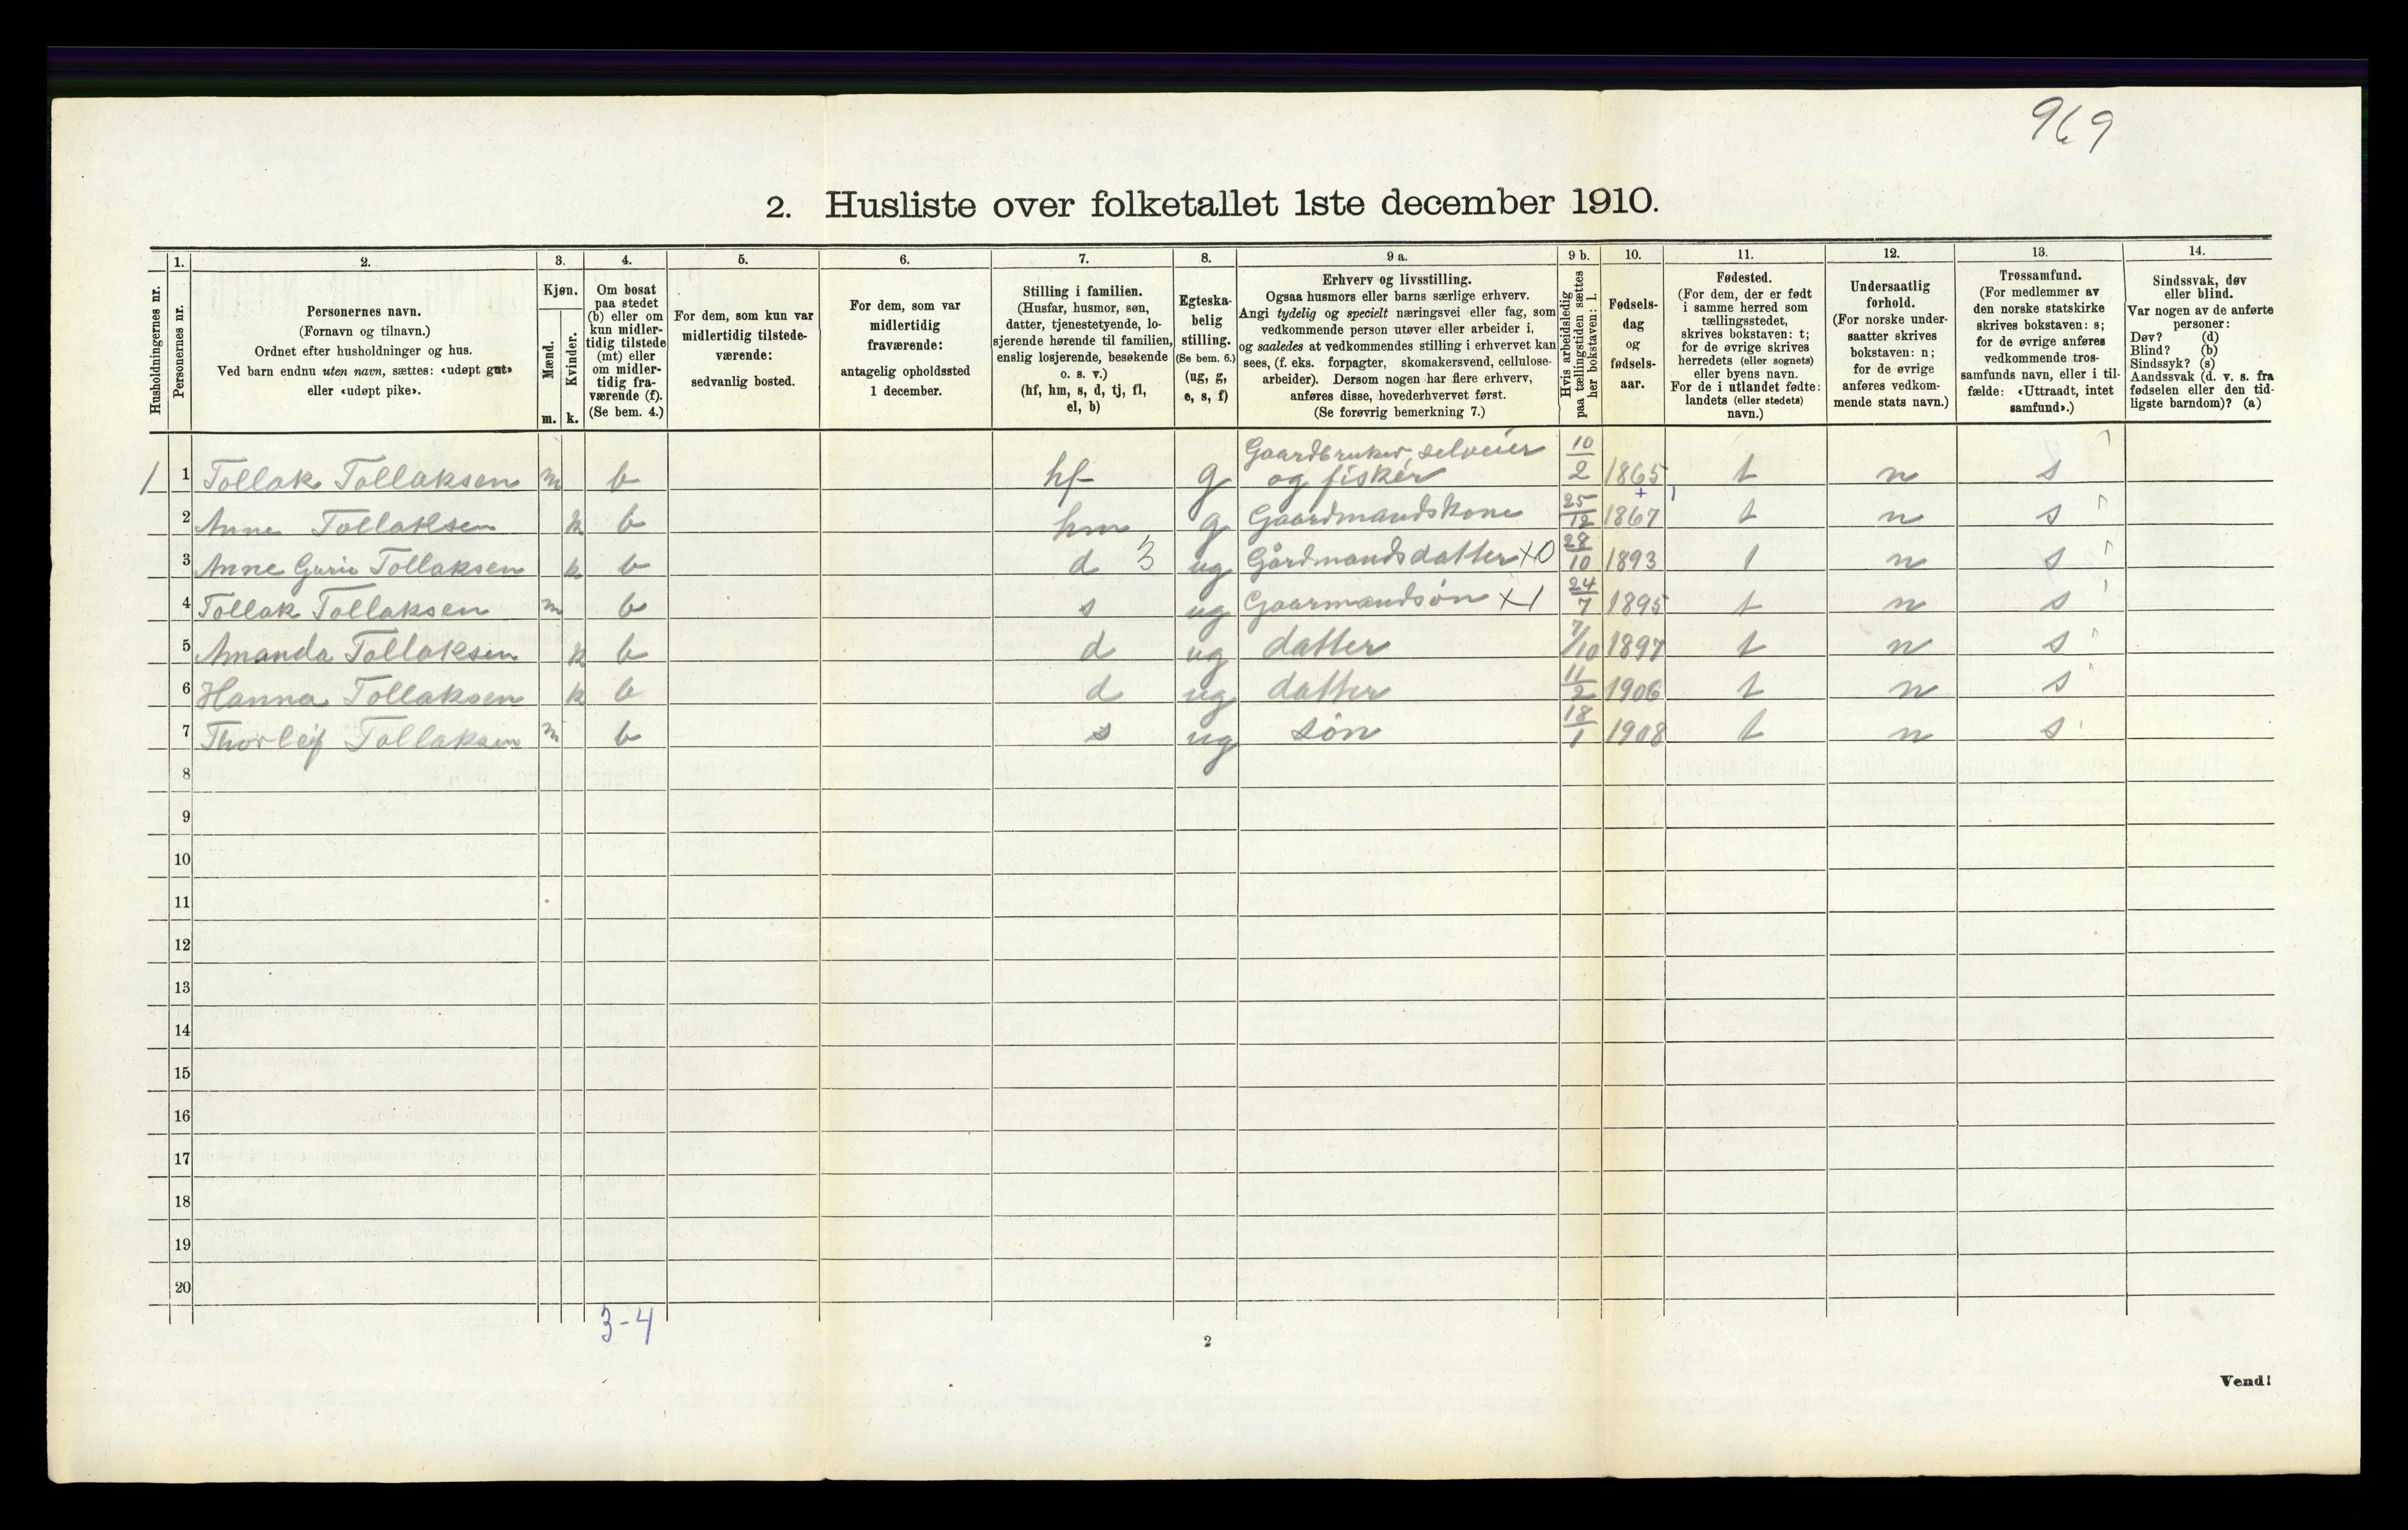 969
2. Husliste over folketallet 1ste december 1910.
Husholdningernes nr.
1.
Personernes nr.
2.
Personernes navn.
(Fornavn og tilnavn.)
Ordnet efter husholdninger og hus.
Ved barn endnu uten navn, sættes: «udøpt gut»
eller «udøpt pike».
3.
Kjøn.
Mænd.
Kvinder.
m. k.
4.
Om bosat
paa stedet
(b) eller om
kun midler-
tidig tilstede
(mt) eller
om midler-
tidig fra-
værende (f).
(Se bem. 4.)
5.
For dem, som kun var
midlertidig tilstede-
værende:
sedvanlig bosted.
6.
For dem, som var
midlertidig
fraværende:
antagelig opholdssted
1 december.
7.
Stilling i familien.
(Husfar, husmor, søn,
datter, tjenestetyende, lo-
sjerende hørende til familien,
enslig losjerende, besøkende
o. s. v.)
(hf, hm, s, d, tj, fl,
el, b)
8.
Egteska-
belig
stilling.
(Se bem. 6.)
(ug, g,
e, s, f)
9 a.
Erhverv og livsstilling.
Ogsaa husmors eller barns særlige erhverv.
Angi tydelig og specielt næringsvei eller fag, som
vedkommende person utøver eller arbeider i,
og saaledes at vedkommendes stilling i erhvervet kan
sees, (f. eks. forpagter, skomakersvend, cellulose-
arbeider). Dersom nogen har flere erhverv,
anføres disse, hovederhvervet først.
(Se forøvrig bemerkning 7.)
9 b.
Hvis arbeidsledig
paa tællingstiden sættes
her bokstaven: l.
10.
Fødsels-
dag
og
fødsels-
aar.
11.
Fødested.
(For dem, der er født
i samme herred som
tællingsstedet,
skrives bokstaven: t;
for de øvrige skrives
herredets (eller sognets)
eller byens navn.
For de i utlandet fødte:
landets (eller stedets)
navn.)
12.
Undersaatlig
forhold.
(For norske under-
saatter skrives
bokstaven: n;
for de øvrige
anføres vedkom-
mende stats navn.)
13.
Trossamfund.
(For medlemmer av
den norske statskirke
skrives bokstaven: s;
for de øvrige anføres
vedkommende tros-
samfunds navn, eller i til-
fælde: «Uttraadt, intet
samfund».)
14.
Sindssvak, døv
eller blind.
Var nogen av de anførte
personer:
Døv? (d)
Blind? (b)
Sindssyk? (s)
Aandssvak (d. v. s. fra
fødselen eller den tid-
ligste barndom)? (a)
1 1 Tollak Tollaksen m b hf g Gaardbruker, selveier og fisker 10/2 1865 t n s
2 Anne Tollaksen k b hm g Gaardmandskone 25/12 1867 t n s
3 Anne Gurie Tollaksen k b d 3 ug Gårdmandsdatter x0 28/10 1893 t n s
4 Tollak Tollaksen m b s ug Gaarmandsøn x1 24/7 1895 t n s
5 Amanda Tollaksen k b d ug datter 7/10 1897 t n s
6 Hanna Tollaksen k b d ug datter 11/2 1906 t n s
7 Thorleif Tollaksen m b s ug søn 18/1 1908 t n s
8
9
10
11
12
13
14
15
16
17
18
19
20
3-4
2
Vend!